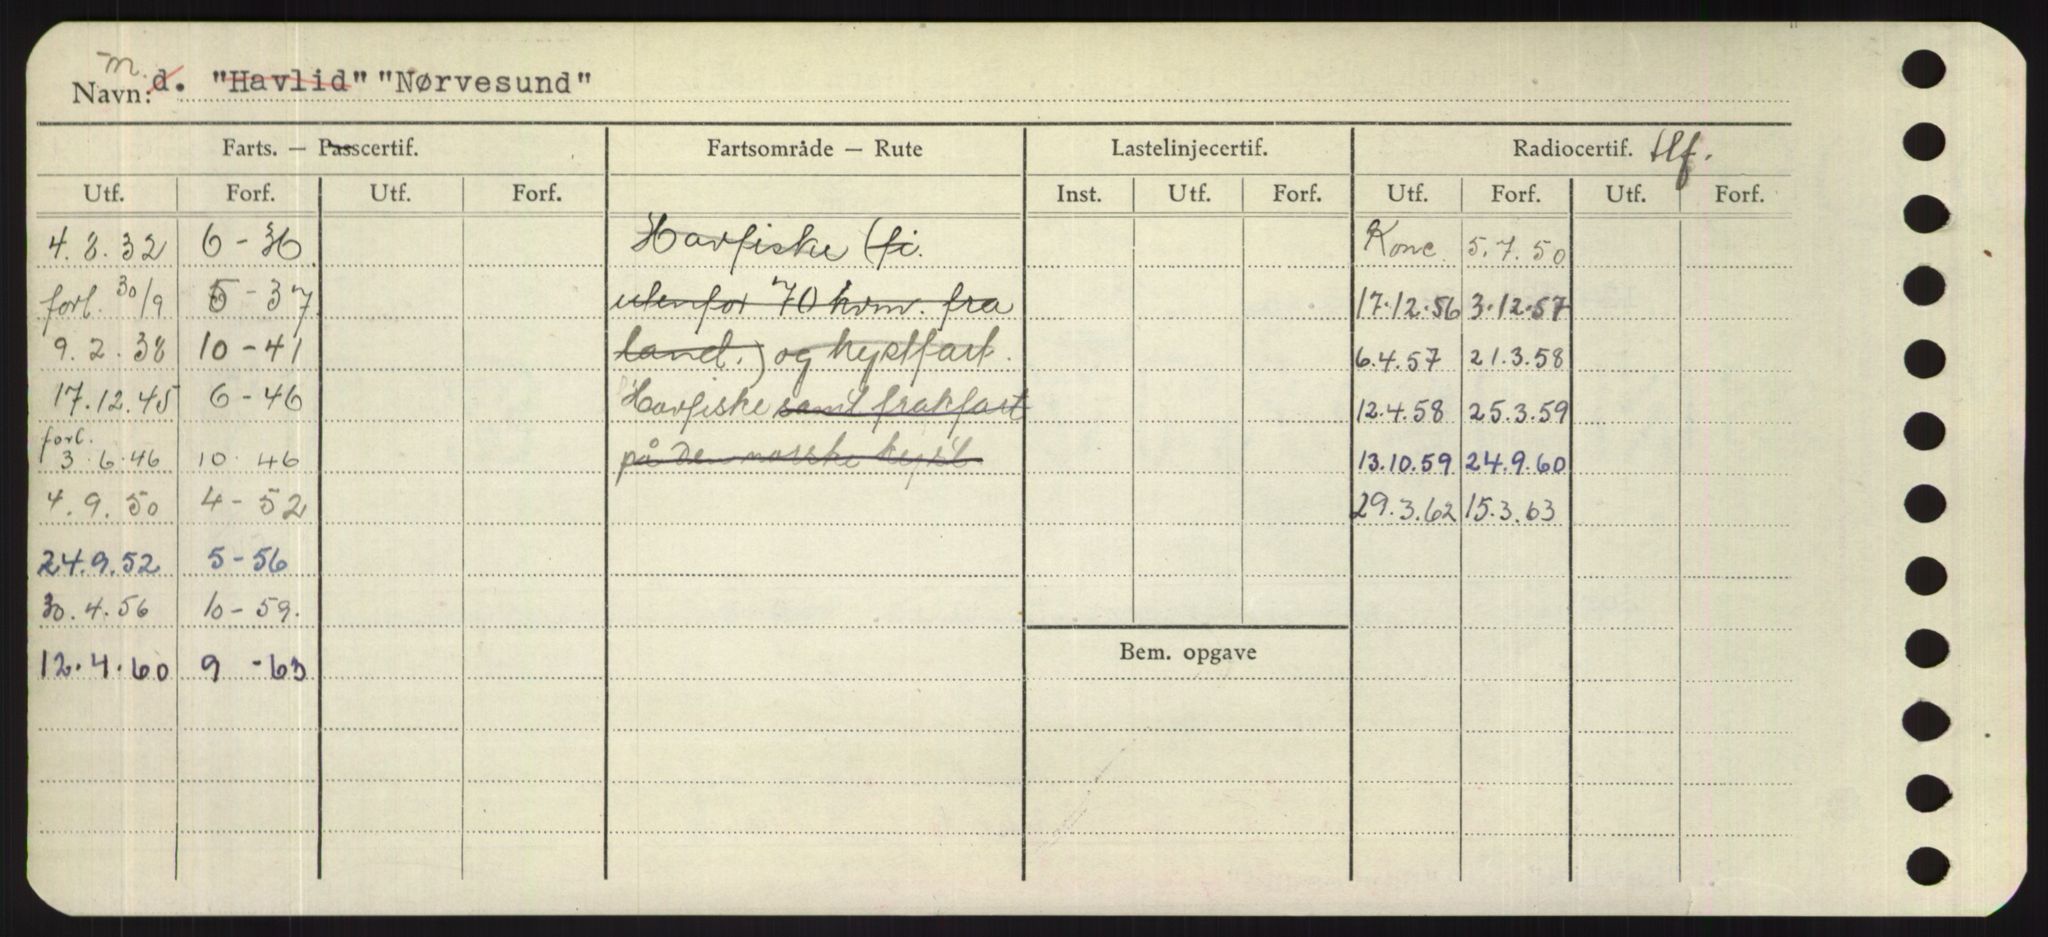 m.
Navn: d. "Havlid" "Nørvesund"
Farts. — Passcertif. Fartsområde — Rute Lastelinjecertif. Radiocertif. tlf.
Utf. Forf. Utf. Forf. Inst. Utf. Forf. Utf. Forf. Utf. Forf.
4.8.32 6-36 Havfiske (fi. Konc. 5.7.50
forl. 30/9 5-37 utenfor 70 kvm. fra 17.12.56 3.12.57
9.2.38 10-41 land.) og kystfart. 6.4.57 21.3.58
17.12.45 6-46 Havfiske samt fraktfart 12.4.58 25.3.59
forl.
3.6.46 10 46 på den norske kyst 13.10.59 24.9.60
4.9.50 4-52 29.3.62 15.3.63
24.9.52 5-56
30.4.56 10-59.
Bem. opgave
12.4.60 9-63